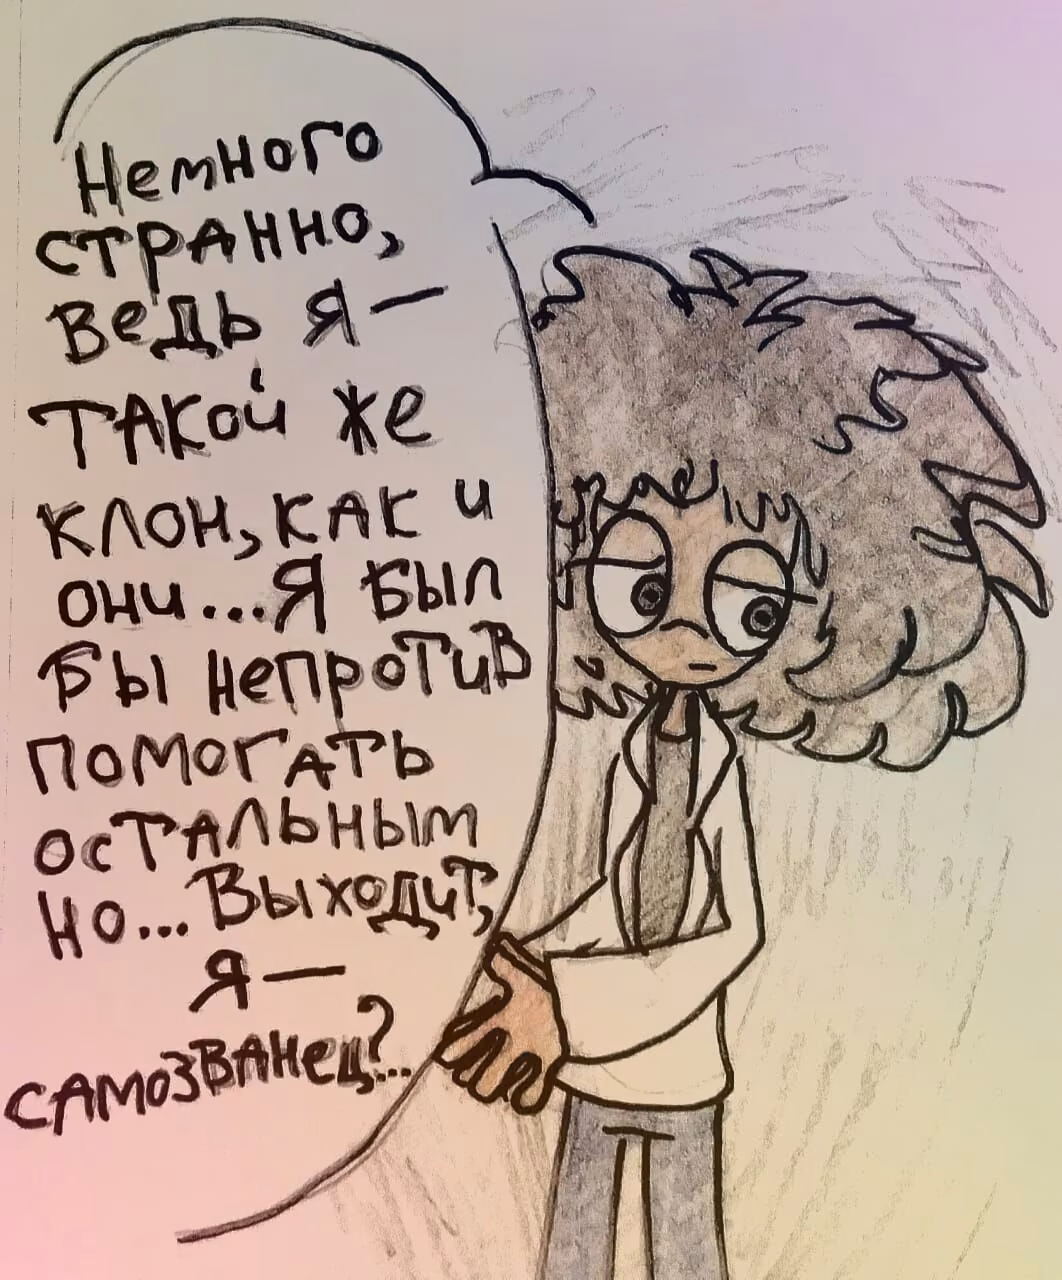 Немного
странно,
ведь я —
такой же
клон, как и
они... Я был
бы непротив
помогать
остальным
но... Выходит,
я —
самозванец?...